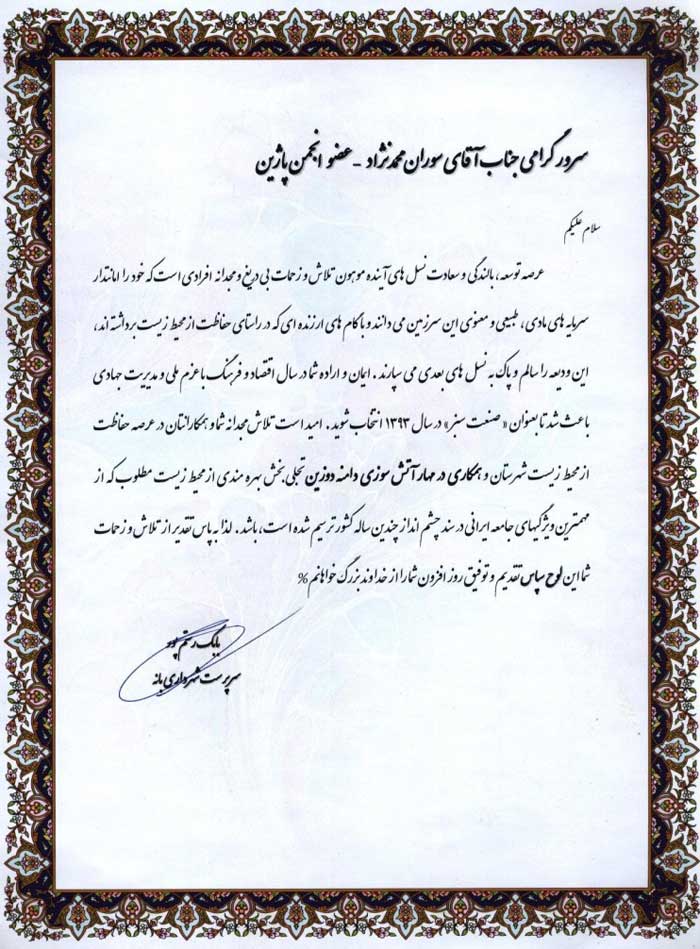 سرور گرامی جناب آقای سوران محمدنژاد - عضو انجمن پاژین
سلام علیکم
عرصه توسعه، بالندگی و سعادت نسل های آینده موهون تلاش و زحمات بی دریغ و مجدانه افرادی است که خود را امانتدار
سرمایه های مادی، طبیعی و معنوی این سرزمین می دانند و با گام های ارزنده ای که در راستای حفاظت از محیط زیست برداشته اند،
این ودیعه را سالم و پاک به نسل های بعدی می سپارند. ایمان و اراده شما در سال اقتصاد و فرهنگ با عزم ملی و مدیریت جهادی
باعث شد تا بعنوان « صنعت سبز» در سال ۱۳۹۳ انتخاب شوید. امید است تلاش مجدانه شما و همکارانتان در عرصه حفاظت
از محیط زیست شهرستان و همکاری در مهار آتش سوزی دامنه دوزین تجلی بخش بهره مندی از محیط زیست مطلوب که از
مهمترین ویژگیهای جامعه ایرانی در سند چشم انداز چندین ساله کشور ترسیم شده است، باشد. لذا به پاس تقدیر از تلاش و زحمات
شما این لوح سپاس تقدیم و توفیق روز افزون شما را از خداوند بزرگ خواهانم %
بابک رستم پور
سرپرست شهرداری بانه